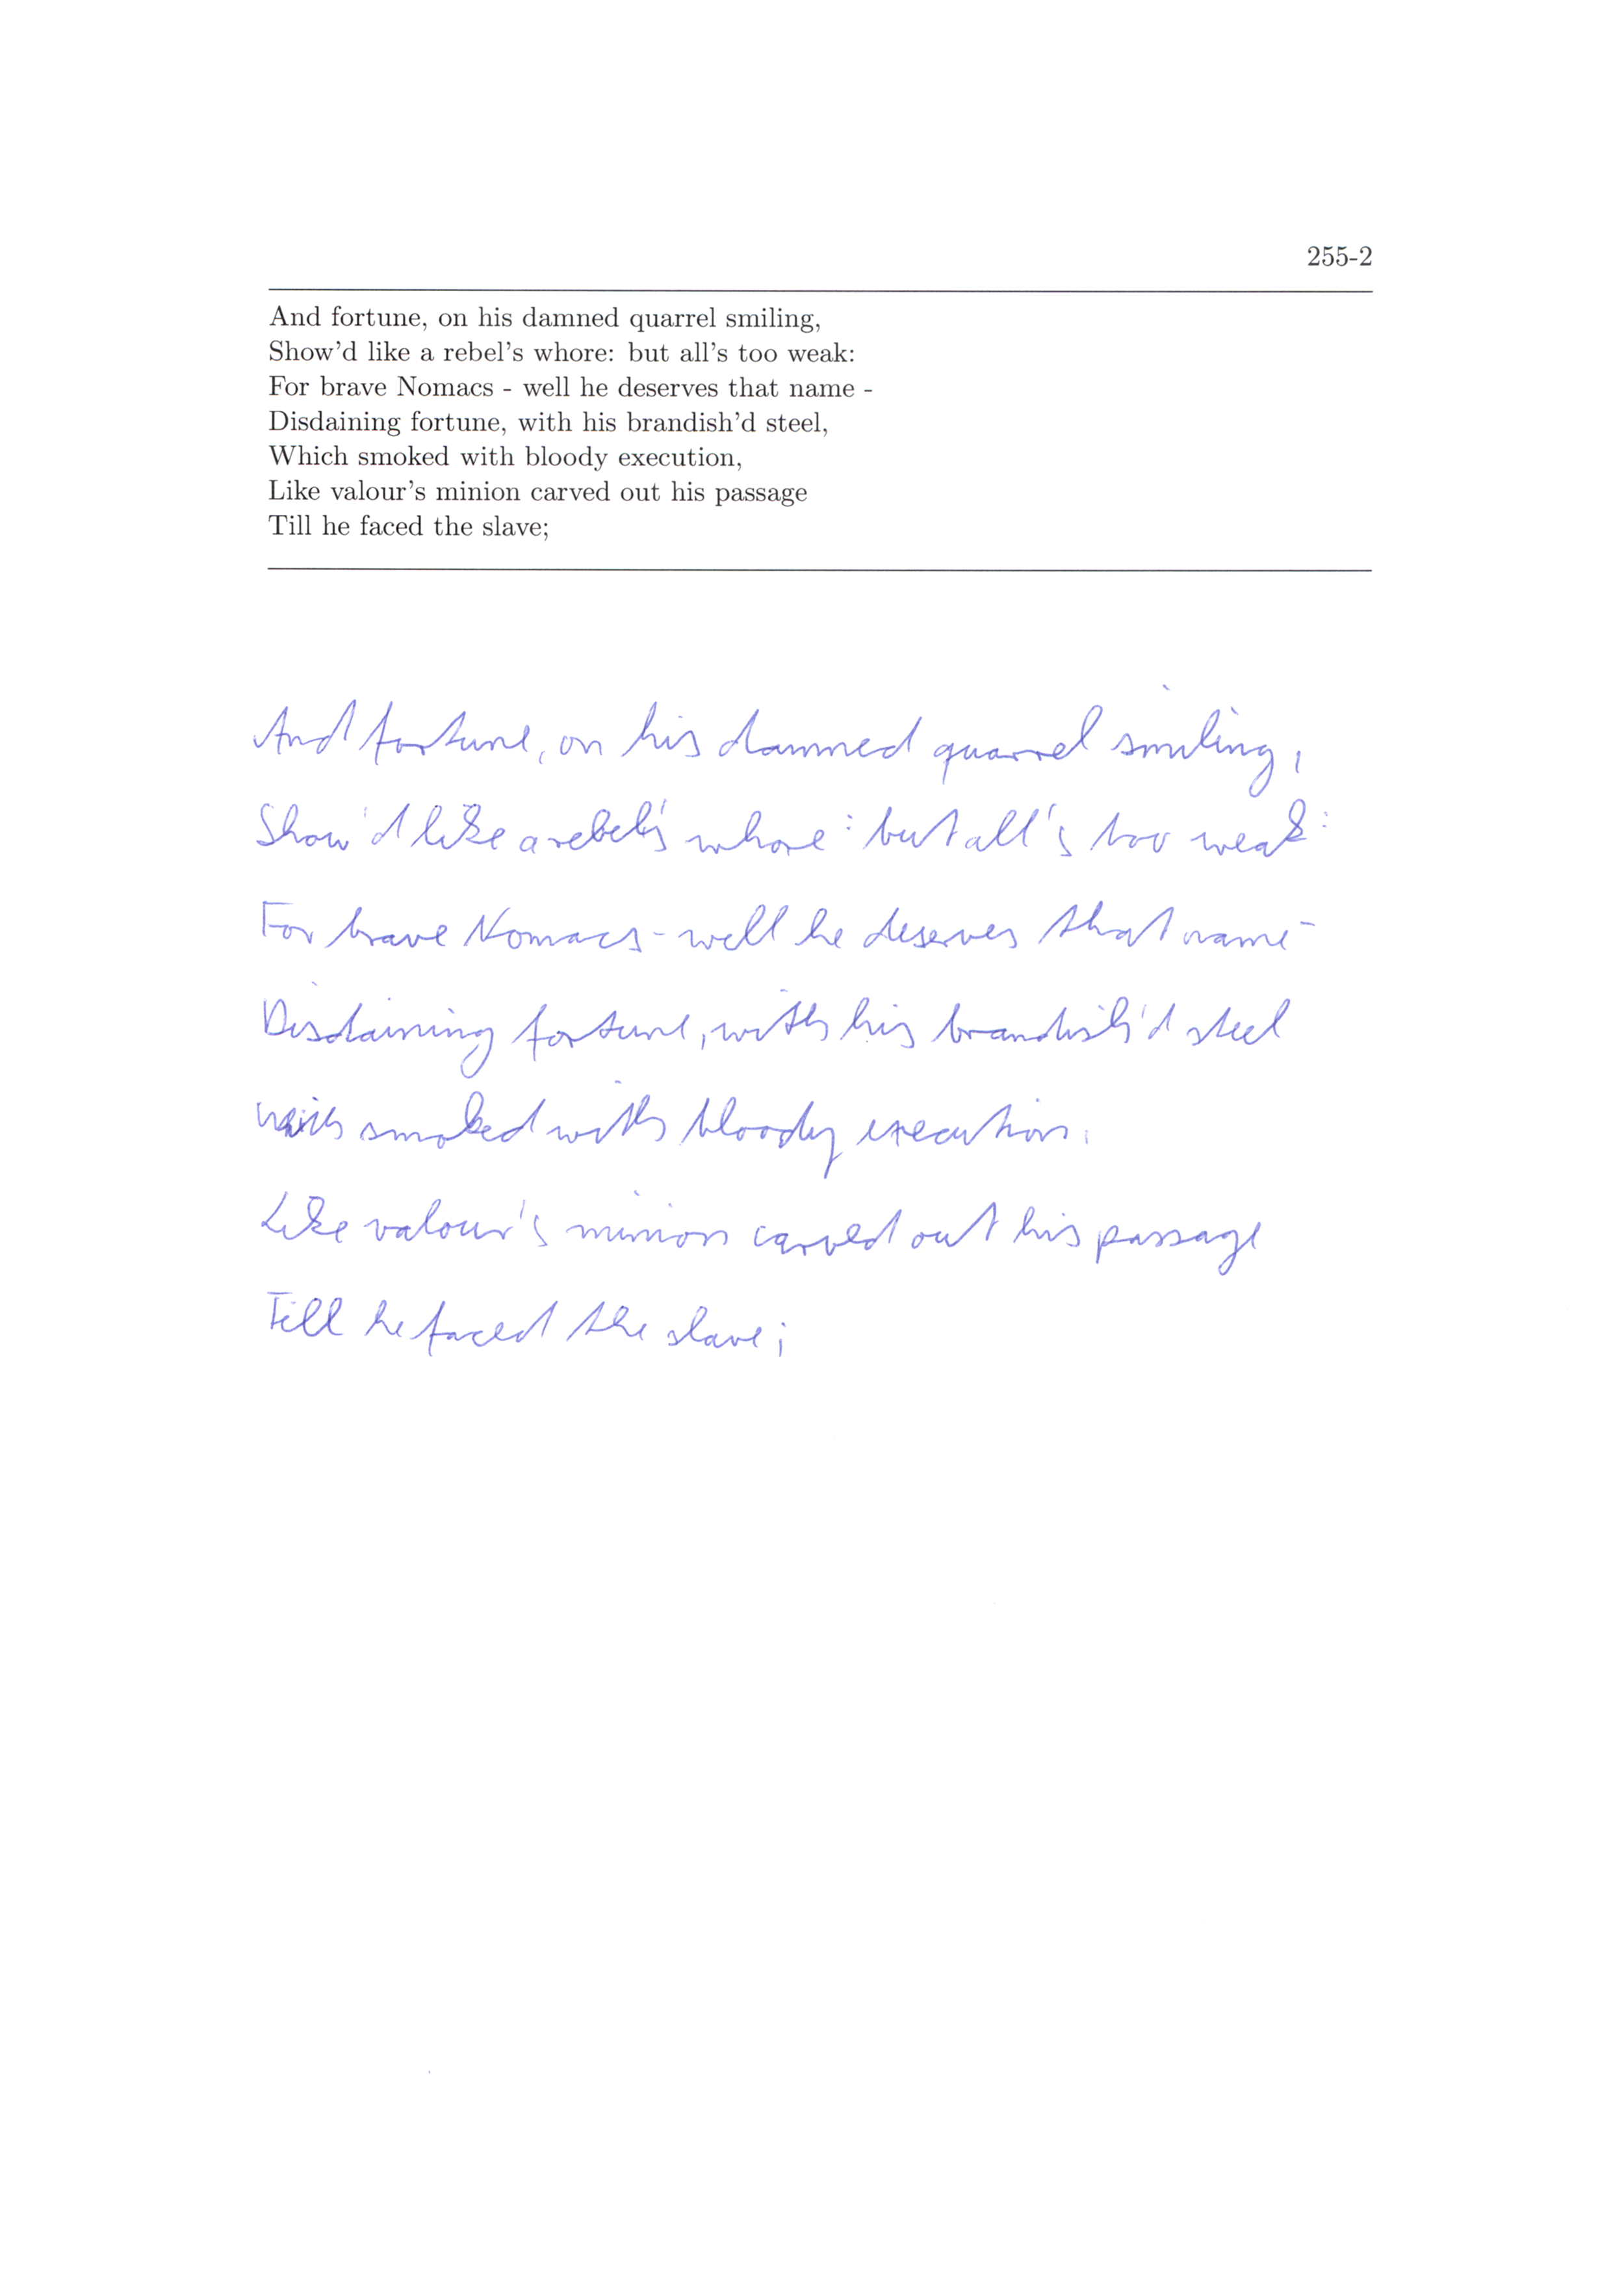 255-2
And fortune, on his damned quarrel smiling,
Show'd like a rebel's whore: but all's too weak:
For brave Nomacs - well he deserves that name -
Disdaining fortune, with his brandish'd steel,
Which smoked with bloody execution,
Like valour's minion carved out his passage
Till he faced the slave;
And fortune, on his damned quarrel smiling,
Show'd like a rebel's whore: but all's too weak:
For brave Nomacs - well he deserves that name -
Disdaining fortune, with his brandish'd steel
smoked with bloody execution,
Like valour's minion carved out his passage
Till he faced the slave;